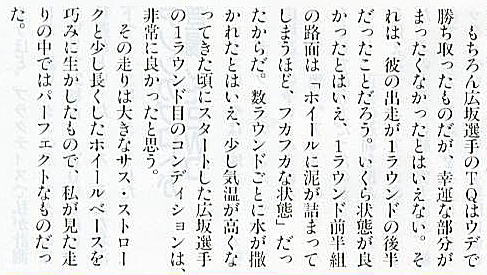 もちろん広坂選手のTQはウデで
勝ち取ったものだが、幸運な部分が
まったくなかったとはいえない。そ
れは、彼の出走が1ラウンドの後半
だったことだろう。いくら状態が良
かったとはいえ、1ラウンド前半組
の路面は「ホイールに泥が詰まって
しまうほど、フカフカな状態」だっ
たからだ。数ラウンドごとに水が撒
かれたとはいえ、少し気温が高くな
ってきた頃にスタートした広坂選手
の1ラウンド目のコンディションは、
非常に良かったと思う。
その走りは大きなサス・ストロー
クと少し長くしたホイールベースを
巧みに生かしたもので、私が見た走
りの中ではパーフェクトなものだっ
た。